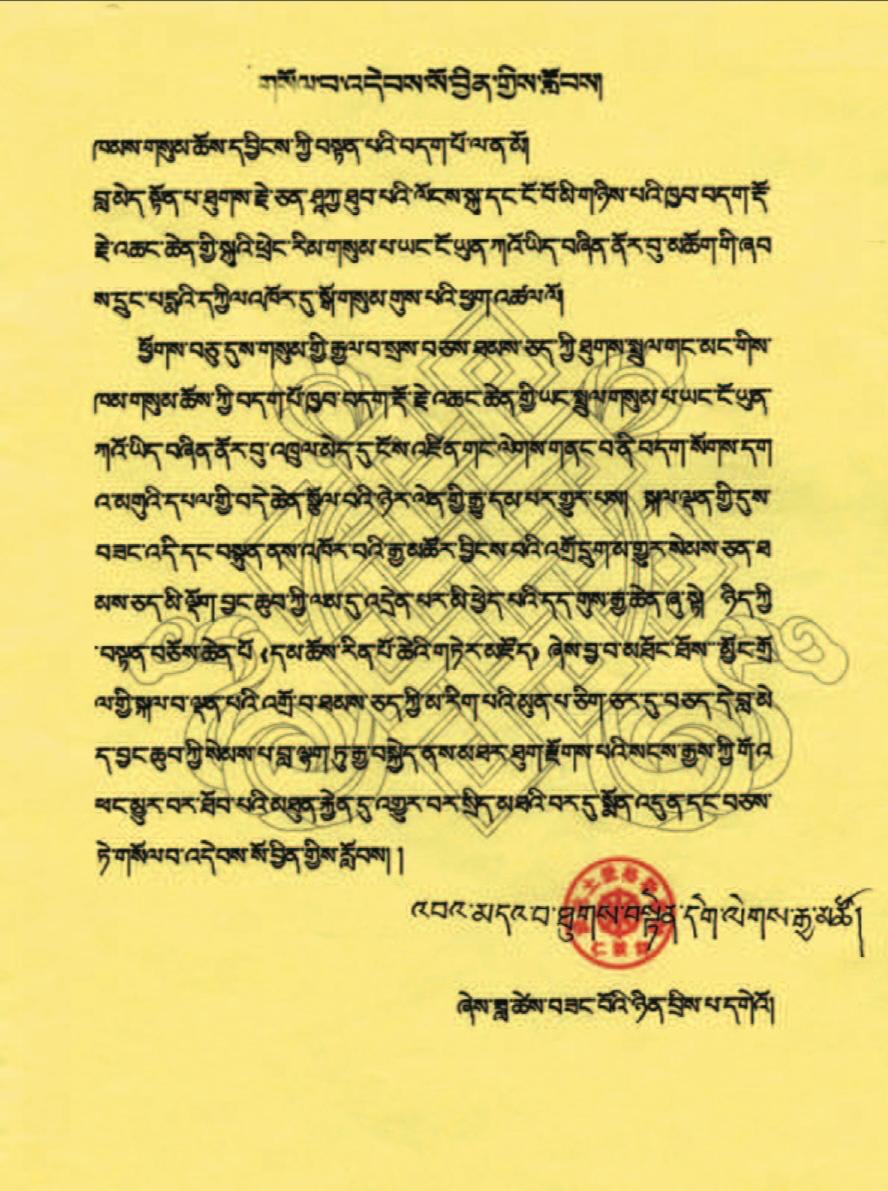 གསོལ་བ་འདེབས་སོ་བྱིན་གྱིས་རློབས།
ཁམས་གསུམ་ཆོས་དབྱིངས་ཀྱི་བསྟན་པའི་བདག་པོ་ལ་ན་མོ།
བླ་མེད་སྟོན་པ་ཐུགས་རྗེ་ཅན་ཤཱཀྱ་ཐུབ་པའི་ལོངས་སྐུ་དང་ངོ་བོ་མི་གཉིས་པའི་ཁྱབ་བདག་རྡོ
རྗེ་འཆང་ཆེན་གྱི་སྐུའི་ཕྲེང་རིམ་གསུམ་པ་ཡང་ངོ་ཡུན་ཀའོ་ཡིད་བཞིན་ནོར་བུ་མཆོག་གི་ཞབ
ས་དྲུང་པདྨའི་དཀྱིལ་འཁོར་དུ་སྒོ་གསུམ་གུས་པའི་ཕྱག་འཚལ་ལོ།
ཕྱོགས་བཅུ་དུས་གསུམ་གྱི་རྒྱལ་བ་སྲས་བཅས་ཐམས་ཅད་ཀྱི་ཐུགས་སྤྲུལ་གང་མང་གིས་
ཁམ་གསུམ་ཆོས་ཀྱི་བདག་པོ་ཁྱབ་བདག་རྡོ་རྗེ་འཆང་ཆེན་གྱི་ཡང་སྤྲུལ་གསུམ་པ་ཡང་ངོ་ཡུན་
ཀའོ་ཡིད་བཞིན་ནོར་བུ་འཁྲུལ་མེད་དུ་ངོས་འཛིན་གང་ལེགས་གནང་བ་ནི་བདག་སོགས་དག
འ་མགུའི་དཔལ་གྱི་བདེ་ཆེན་སྩོལ་བའི་ཉེར་ལེན་གྱི་རྒྱུ་དམ་པར་གྱུར་པས། སྐལ་ལྡན་གྱི་དུས་
བཟང་འདི་དང་བསྟུན་ནས་འཁོར་བའི་རྒྱ་མཚོར་བྱིངས་བའི་འགྲོ་དྲུག་མ་གྱུར་སེམས་ཅན་ཐ
མས་ཅད་མི་ལྡོག་བྱང་ཆུབ་ཀྱི་ལམ་དུ་འདྲེན་པར་མི་ཕྱེད་པའི་དད་གུས་རྒྱ་ཆེན་ཞུ་སྟེ། ཉིད་ཀྱི
་བསྟན་བཅོས་ཆེན་པོ《དམ་ཆོས་རིན་པོ་ཆེའི་གཏེར་མཛོད》ཞེས་བྱ་བ་མཐོང་ཐོས་ མྱོང་གྲོ
ལ་གྱི་སྐལ་བ་ལྡན་པའི་འགྲོ་བ་ཐམས་ཅད་ཀྱི་མ་རིག་པའི་མུན་པ་ཅིག་ཅར་དུ་བཅད་དེ་བླ་མེ
ད་བྱང་ཆུབ་ཀྱི་སེམས་པ་བླ་ལྷག་ཏུ་རྒྱ་བསྐྱེད་ནས་མཐར་ཐུག་རྫོགས་པའི་སངས་རྒྱས་ཀྱི་གོ་འ
ཕང་མྱུར་བར་ཐོབ་པའི་མཐུན་རྐྱེན་དུ་འགྱུར་བར་སྲིད་མཐའི་བར་དུ་སྨོན་འདུན་དང་བཅས་
ཏེ་གསོལ་བ་འདེབས་སོ་བྱིན་གྱིས་རློབས། །
འབའ་མདའ་བ་ཐུགས་བསྟན་དགེ་ལེགས་རྒྱ་མཚོ།
ཞེས་ཟླ་ཚེས་བཟང་པོའི་ཉིན་བྲིས་པ་དགེའོ།